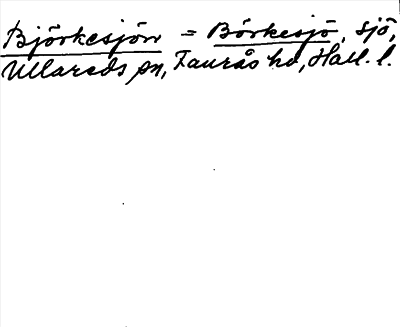 Björkesjön = Börkesjö, sjö,
Ullareds sn, Faurås hd, Hall. l.